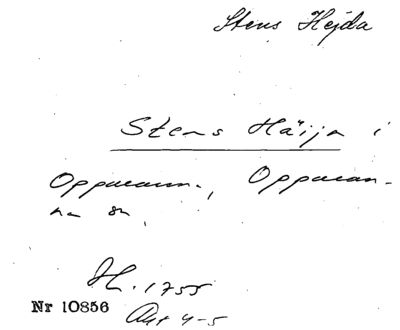 Stens Hejda
Stens Häija i
Oppmanna, Opparan-
na sn.
H. 1755
Nr 10856
Akt 4-5